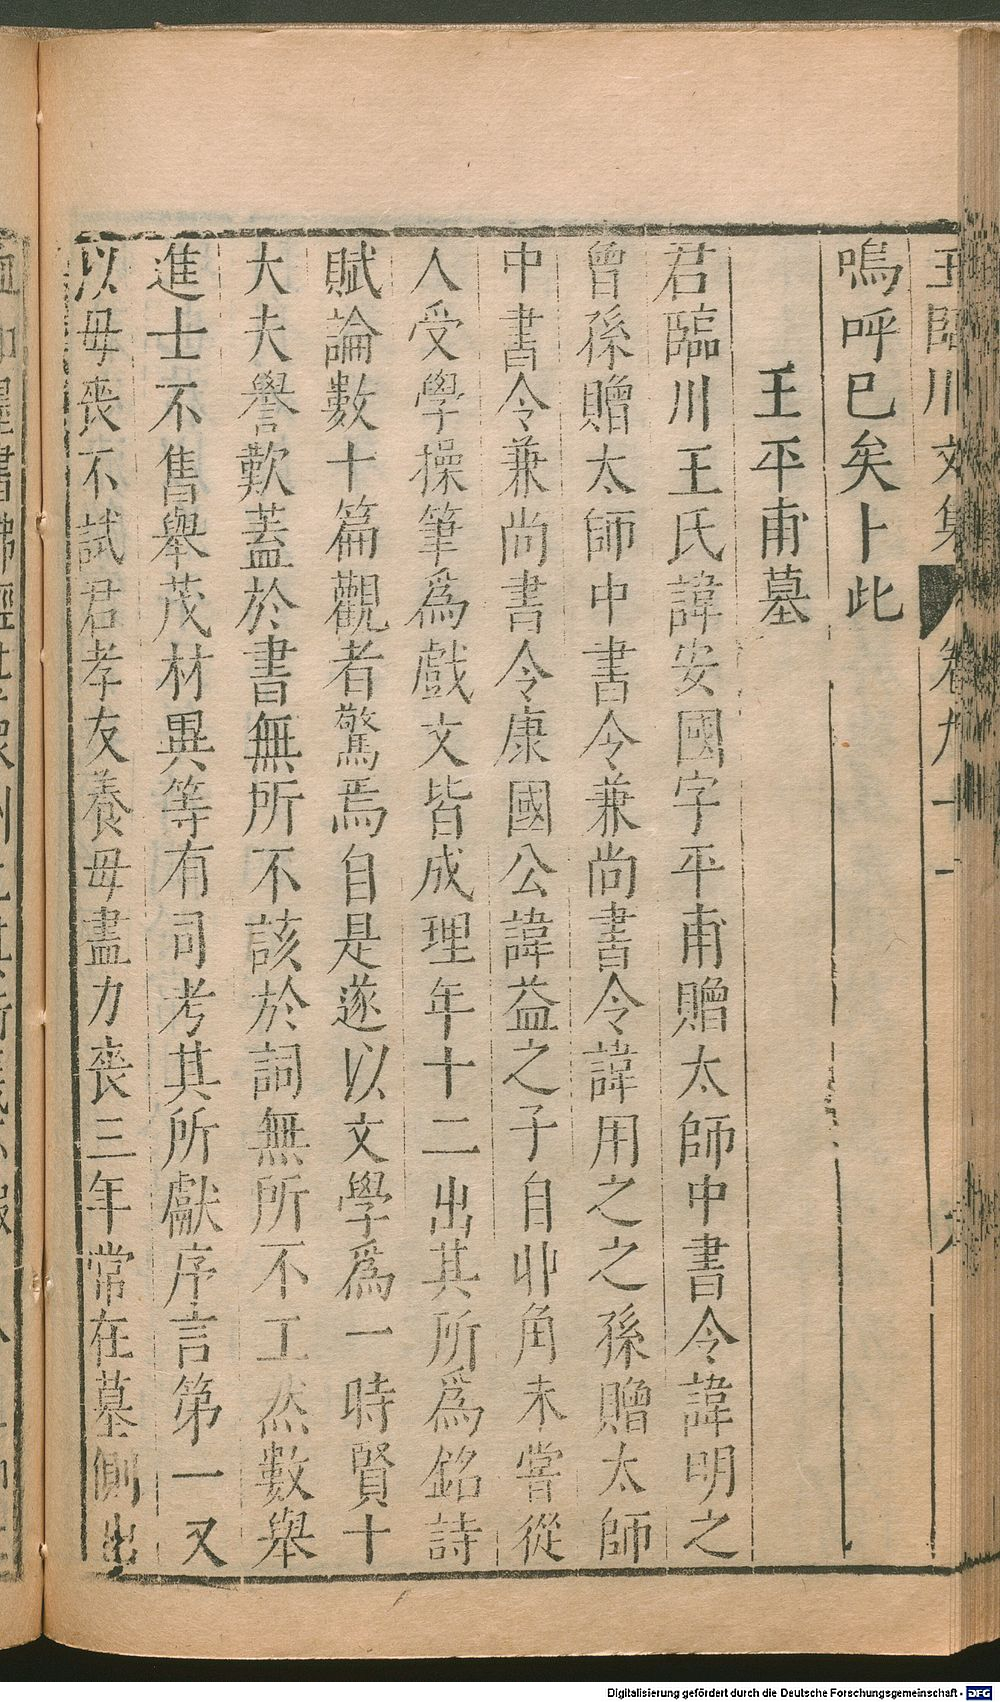 王臨川文集 卷九十一
嗚呼已矣卜此
王平甫墓
君臨川王氏諱安國字平甫贈太師中書令諱明之
曾孫贈太師中書令兼尚書令諱用之之孫贈太師
中書令兼尚書令康國公諱益之子自丱角未嘗從
人受學操筆為戲文皆成理年十二出其所為銘詩
賦論數十篇觀者驚焉自是遂以文學為一時賢士
大夫譽歎蓋於書無所不該於詞無所不工然數舉
進士不售舉茂材異等有司考其所獻序言第一又
以母喪不試君孝友養母盡力喪三年常在墓側出
Digitalisierung gefördert durch die Deutsche Forschungsgemeinschaft - DFG